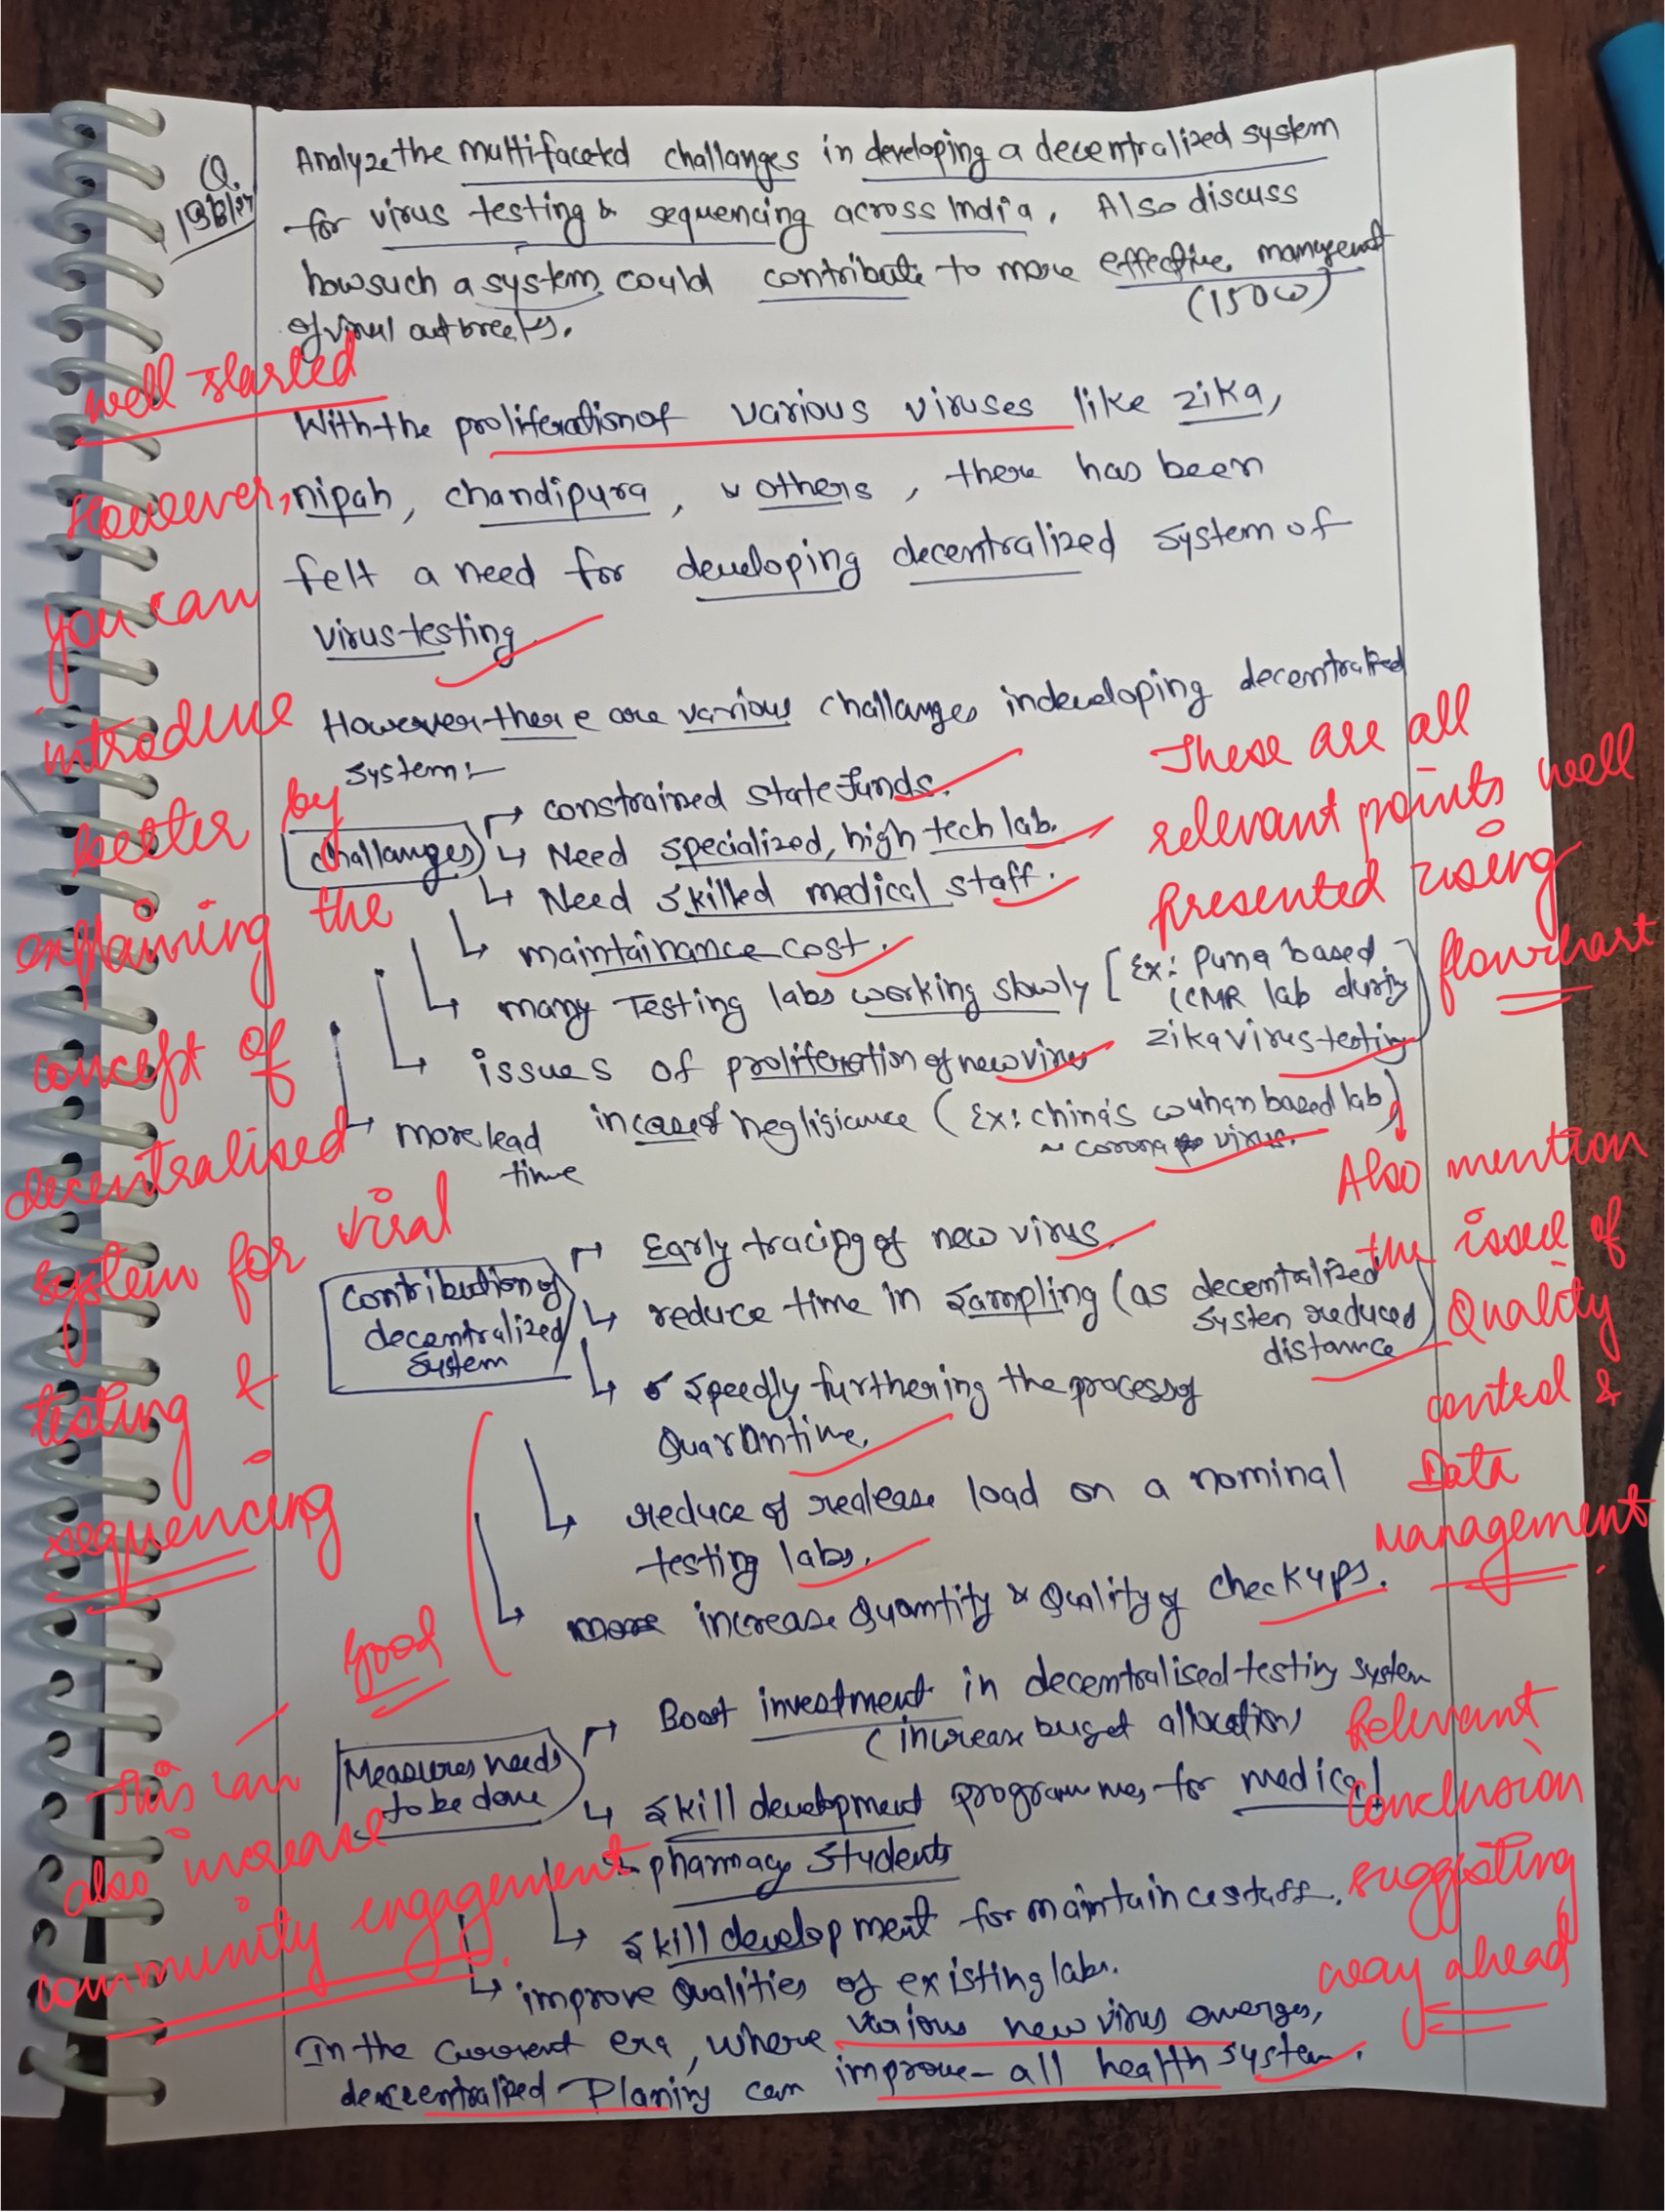 Q.
Analyze the multifaceted challanges in developing a decentralized system
for virus testing & sequencing across India. Also discuss
how such a system could contribute to more effective management
of viral outbreaks.
(150w)
well started
With the proliferation of various viruses like zika,
nipah, chandipura, & others, there has been
felt a need for developing decentralized system of
virus testing.
However, you can introduce better by explaining the concept of decentralised system for viral testing & sequencing
However there are various challanges in developing decentralized
system:-
challanges
constrained state funds.
Need specialized, high tech lab.
Need skilled medical staff.
maintainance cost.
many Testing labs working slowly [Ex: Pune based
ICMR lab during
zika virus testing]
issues of proliferation of new virus
in case of negligiance (Ex: china's wuhan based lab
~ corona virus.)
more lead
time
These are all
relevant points well
presented using
flowchart
Also mention
the issue of
Quality
control &
Data
management.
Contribution of
decentralized
system
Early tracing of new virus.
reduce time in sampling (as decentralized
system reduced
distance)
speedly furthering the process of
Quarantine.
reduce of realease load on a nominal
testing labs.
increase Quantity & Quality of checkups.
Good
This can
also increase
community engagement.
Measures needs
to be done
Boost investment in decentralised testing system
(increase buget allocation)
skill development programmes for medical
pharmacy students
skill development for maintaince staff.
improve Qualities of existing labs.
In the current era, where various new virus emerges,
decentralized Planing can improve all health system.
Relevant
conclusion
suggesting
way ahead